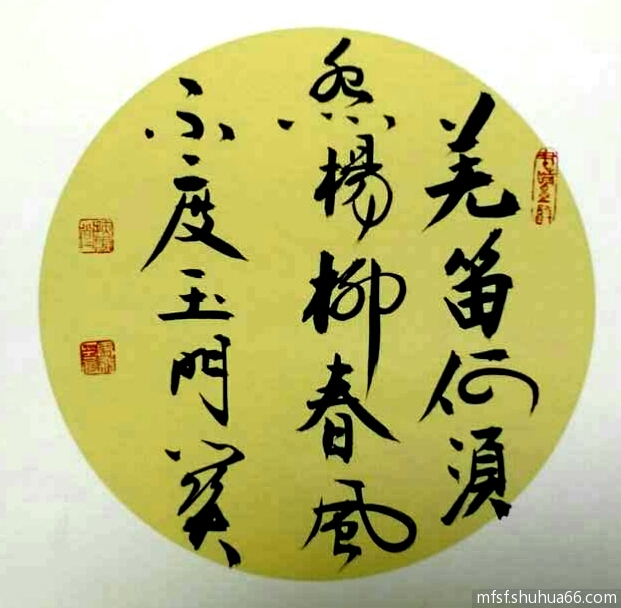 羌笛何須
怨楊柳春風
不度玉門關
mfsf.shuhua66.com